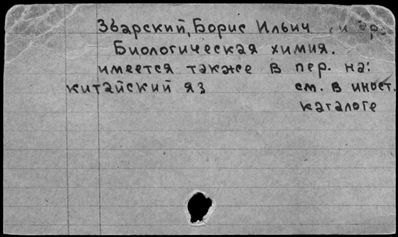 Збарский, Борис Ильич и др.
Биологическая химия.
имеется также в пер. на:
китайский яз см. в иност.
каталоге